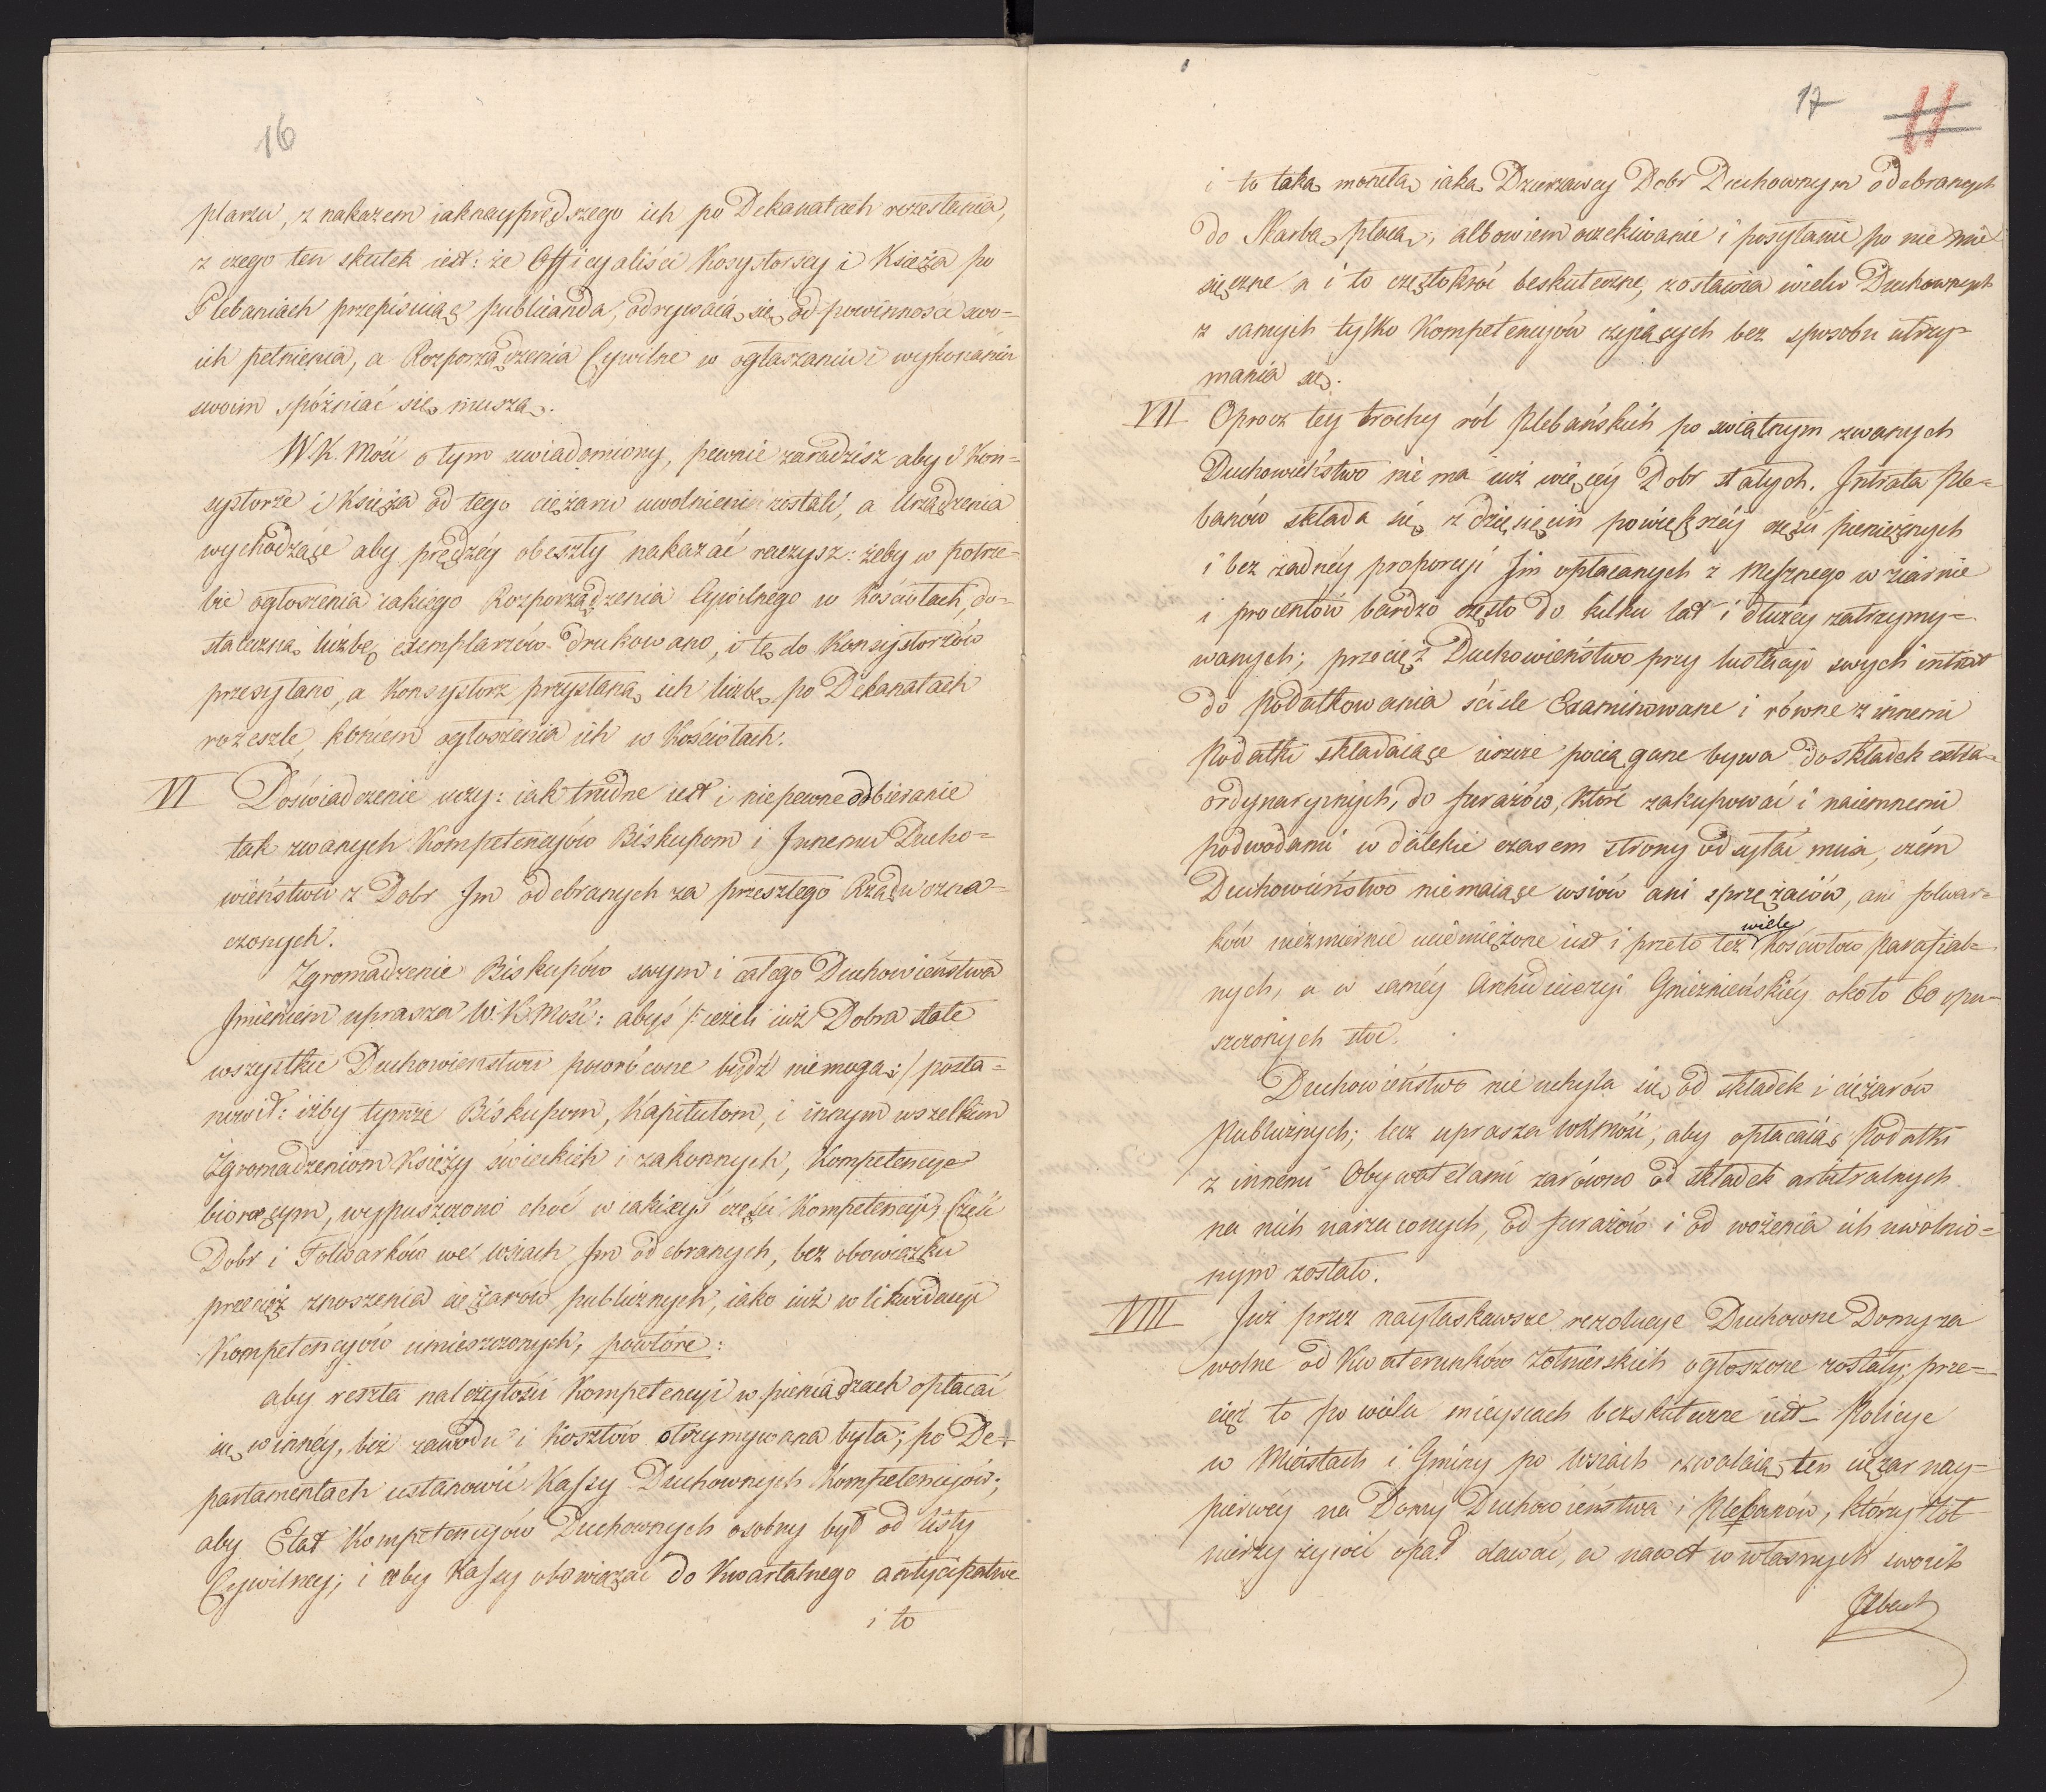 16
plarzu, z nakazem iaknayprędszego ich po Dekanatach rozesłania,
z czego ten skutek iest: że Officyaliści Kosystorscy i Księża po
Plebaniach przepisuiąc publicanda, odrywaią się od powinności swo-
ich pełnienia, a Rozporządzenia Cywilne w ogłaszaniu i wykonaniu
swoim spóźniać się muszą.
W.K. Mość o tym uwiadomiony, pewnie zaradzisz aby i Kon-
systorze i Księża od tego ciężaru uwolnieni zostali, a Urządzenia
wychodzące aby prędzéy obeszły nakazać raczysz: żeby w potrze-
bie ogłoszenia iakiego Rozporządzenia Cywilnego w Kościołach, do-
stateczną liczbę exemplarzów drukowano, i tę do Konsystorzów
przesyłano, a Konsystorz przysłaną ich liczbę po Dekanatach
rozeszle, końcem ogłoszenia ich w Kościołach.
VI Doświadczenie uczy: iak trudne iest i niepewne odbieranie
tak zwanych Kompetencyów Biskupom i Innemu Ducho-
wieństwu z Dobr Im odebranych za przeszłego Rządu ozna-
czonych.
Zgromadzenie Biskupów swym i całego Duchowieństwa
Imieniem uprasza W.K.Mość: abyś /: ieżeli iuż Dobra stałe
wszystkie Duchowieństwu powrócone bydź niemogą :/ posta-
nowił: iżby tymże Biskupom, Kapitułom, i innym wszelkim
Zgromadzeniom Księży świeckich i zakonnych, Kompetencye
biorącym, wypuszczono choć w iakieyś części Kompetencyi, Część
Dobr i Folwarków we wsiach Im odebranych, bez obowiązku
przecięż znoszenia ciężarów publicznych, iako iuż w likwidacyi
Kompetencyów umieszczonych, powtóre:
aby reszta należytości Kompetencyi w pieniądzach opłacać
się winnéy, bez zawodu i kosztów otrzymywana była; po De-
partamentach ustanowić Kassy Duchownych Kompetencyów;
aby Etat Kompetencyów Duchownych osobny był od listy
Cywilney; i aby Kassy obowiązać do Kwartalnego anticipative
i to
17 11
i to taką monetą iaką Dzierzawcy Dobr Duchownym odebranych
do Skarbu płacą, albowiem oczekiwanie i posyłanie po nie mie-
sięczne a i to częstokroć beskuteczne, zostawia wielu Duchownych
z samych tylko Kompetencyów żyiących bez sposobu utrzy-
mania się.
VII Oprocz tey trochy ról Plebańskich po świątnym zwanych
Duchowieństwo nie ma iuż więcéy Dobr stałych. Intrata Ple-
banów składa się z dziesięcin powiększéy części pieniężnych
i bez żadnéy proporcyi Im opłacanych z Mesznego w ziarnie
i procentów bardzo często do kilku lat i dłużéy zatrzymy-
wanych; przecięż Duchowieństwo przy lustracyi swych intrat
do podatkowania ściśle Examinowane i równe z innemi
Podatki składaiące ieszcze pociągane bywa do składek extra-
ordynarynych, do furażów, które zakupować i naiemnemi
podwodami w dalekie czasem strony odsyłać musi, czém
Duchowieństwo niemaiące wsiów ani sprzężaiów, ani folwar-
ków niezmiernie uciemiężone iest i przeto też wiele Kościołów Parafial-
nych, a w saméy Archidiecezyi Gnieźnieńskiéy około 60 opu-
szczonych stoi.
Duchowieństwo nie uchyla się od składek i ciężarów
Publicznych; lecz uprasza WKMość, aby opłacaiąc Podatki
z innemi Obywatelami zarówno od składek arbitralnych
na nich narzuconych, od furażów i od wożenia ich uwolnio-
nym zostało.
VIII Już przez nayłaskawsze rezolucye Duchowne Domy za
wolne od Kwaterunków żołnierskich ogłoszone zostały; prze-
cięż to po wielu mieyscach bezskuteczne iest_ Policye
w Miastach i Gminy po wsiach zwalaią ten ciężar nay-
pierwéy na Domy Duchowieństwa i Plebanów, którzy żoł-
nierzy żywić opał dawać, a nawet w własnych swoich
Izbach